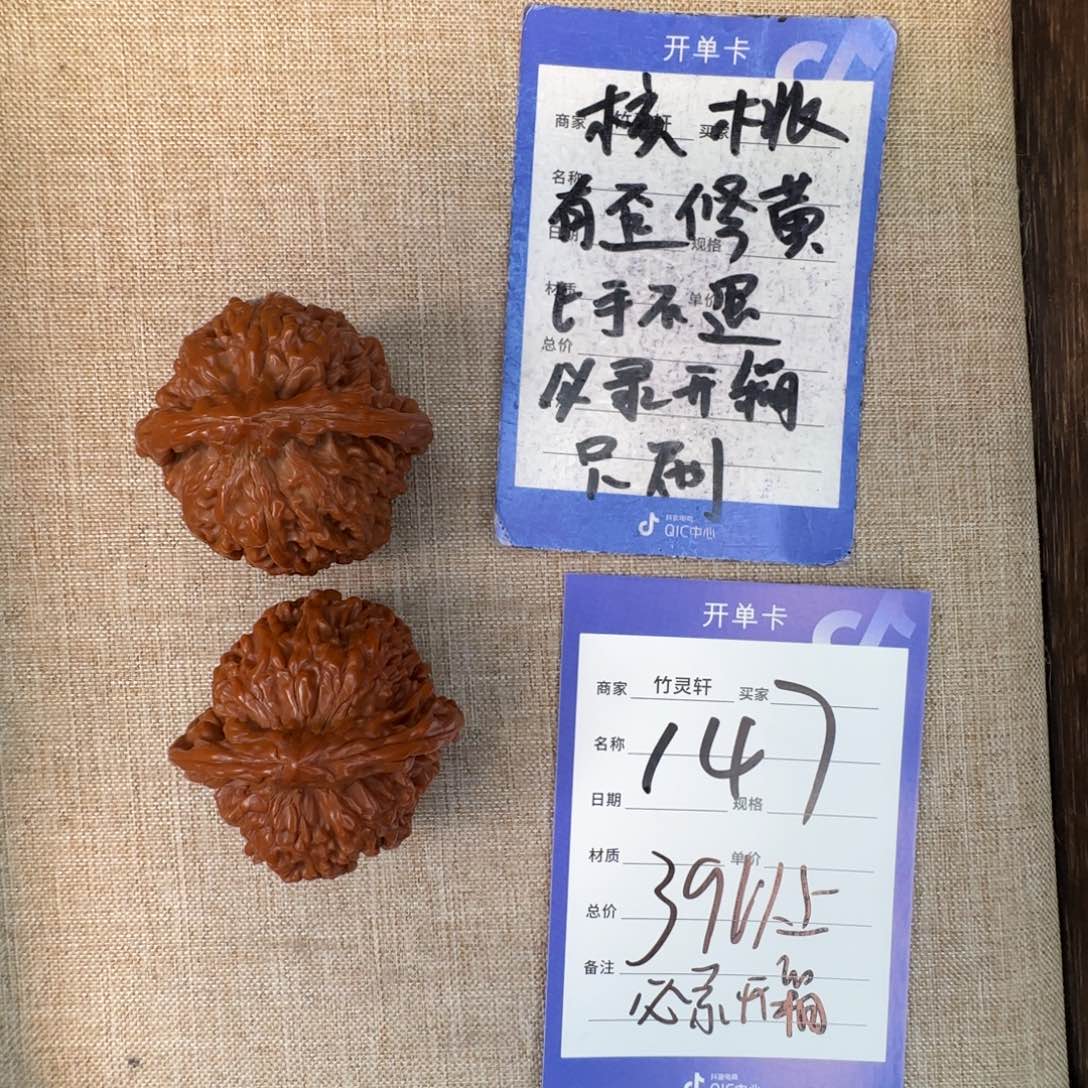 开单卡
商家 竹灵轩 买家
核桃
名称
有歪修黄
日期 规格
材质 单价
上手不退
总价
必录开箱
只刷
抖音电商
QIC中心
开单卡
商家 竹灵轩 买家
名称 147
日期 规格
材质 单价
总价 39以上
备注
必录开箱
抖音电商
QIC中心